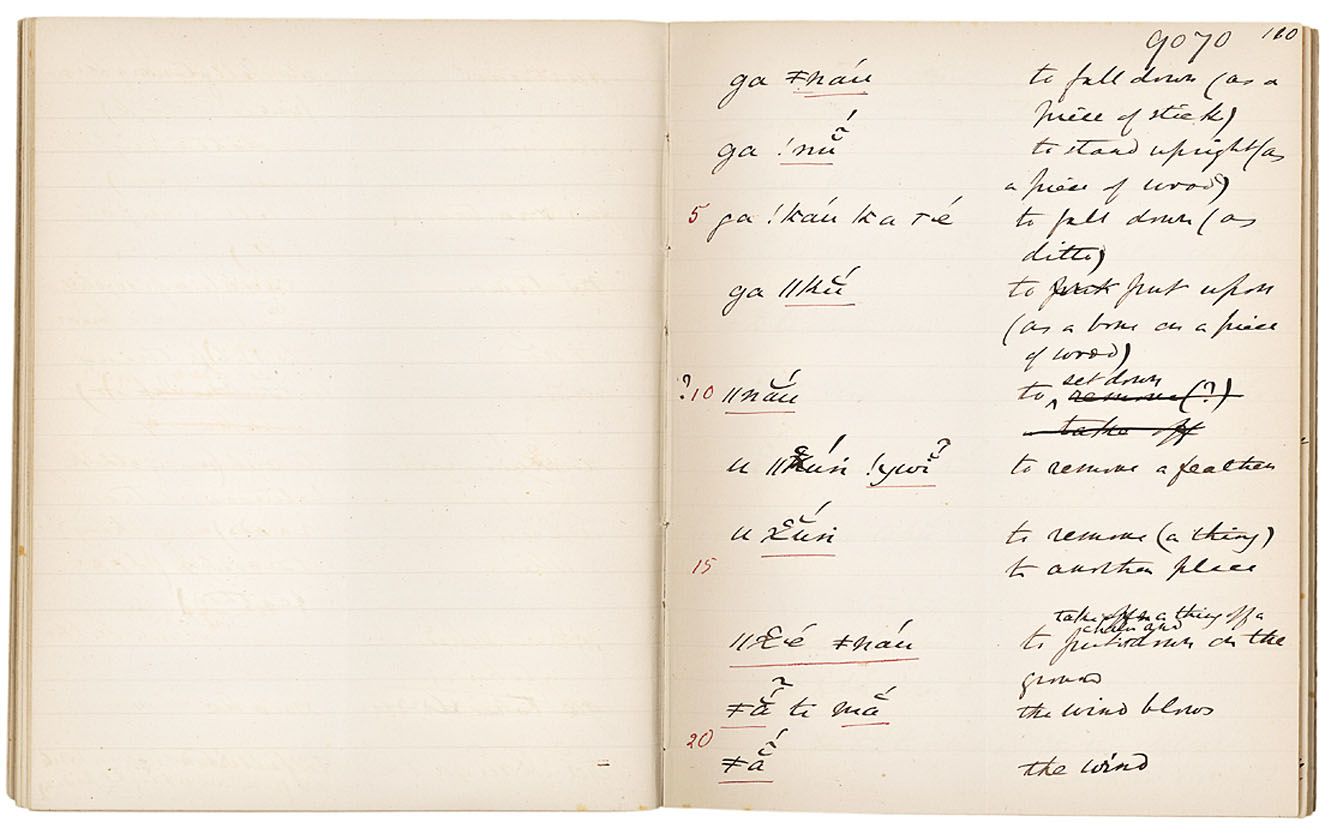 9070 110
ga ǂnáu to fall down (as a
piece of stick)
ga !nṹ to stand upright (as
a piece of wood)
5 ga !káu ka ti̵é to fall down (as
ditto)
ga ǁkŭ́ to put upon
(as a bone on a piece
of wood)
set down
? 10 ǁnắu to remove (?)
take off
u !ywĭ̃ to remove a feather
u to remove (a thing)
15 to another place
take a thing off a
ǂnáu to put down on the
ground
ǂã̆́ te mắ the wind blows
20
ǂã̆́ the wind